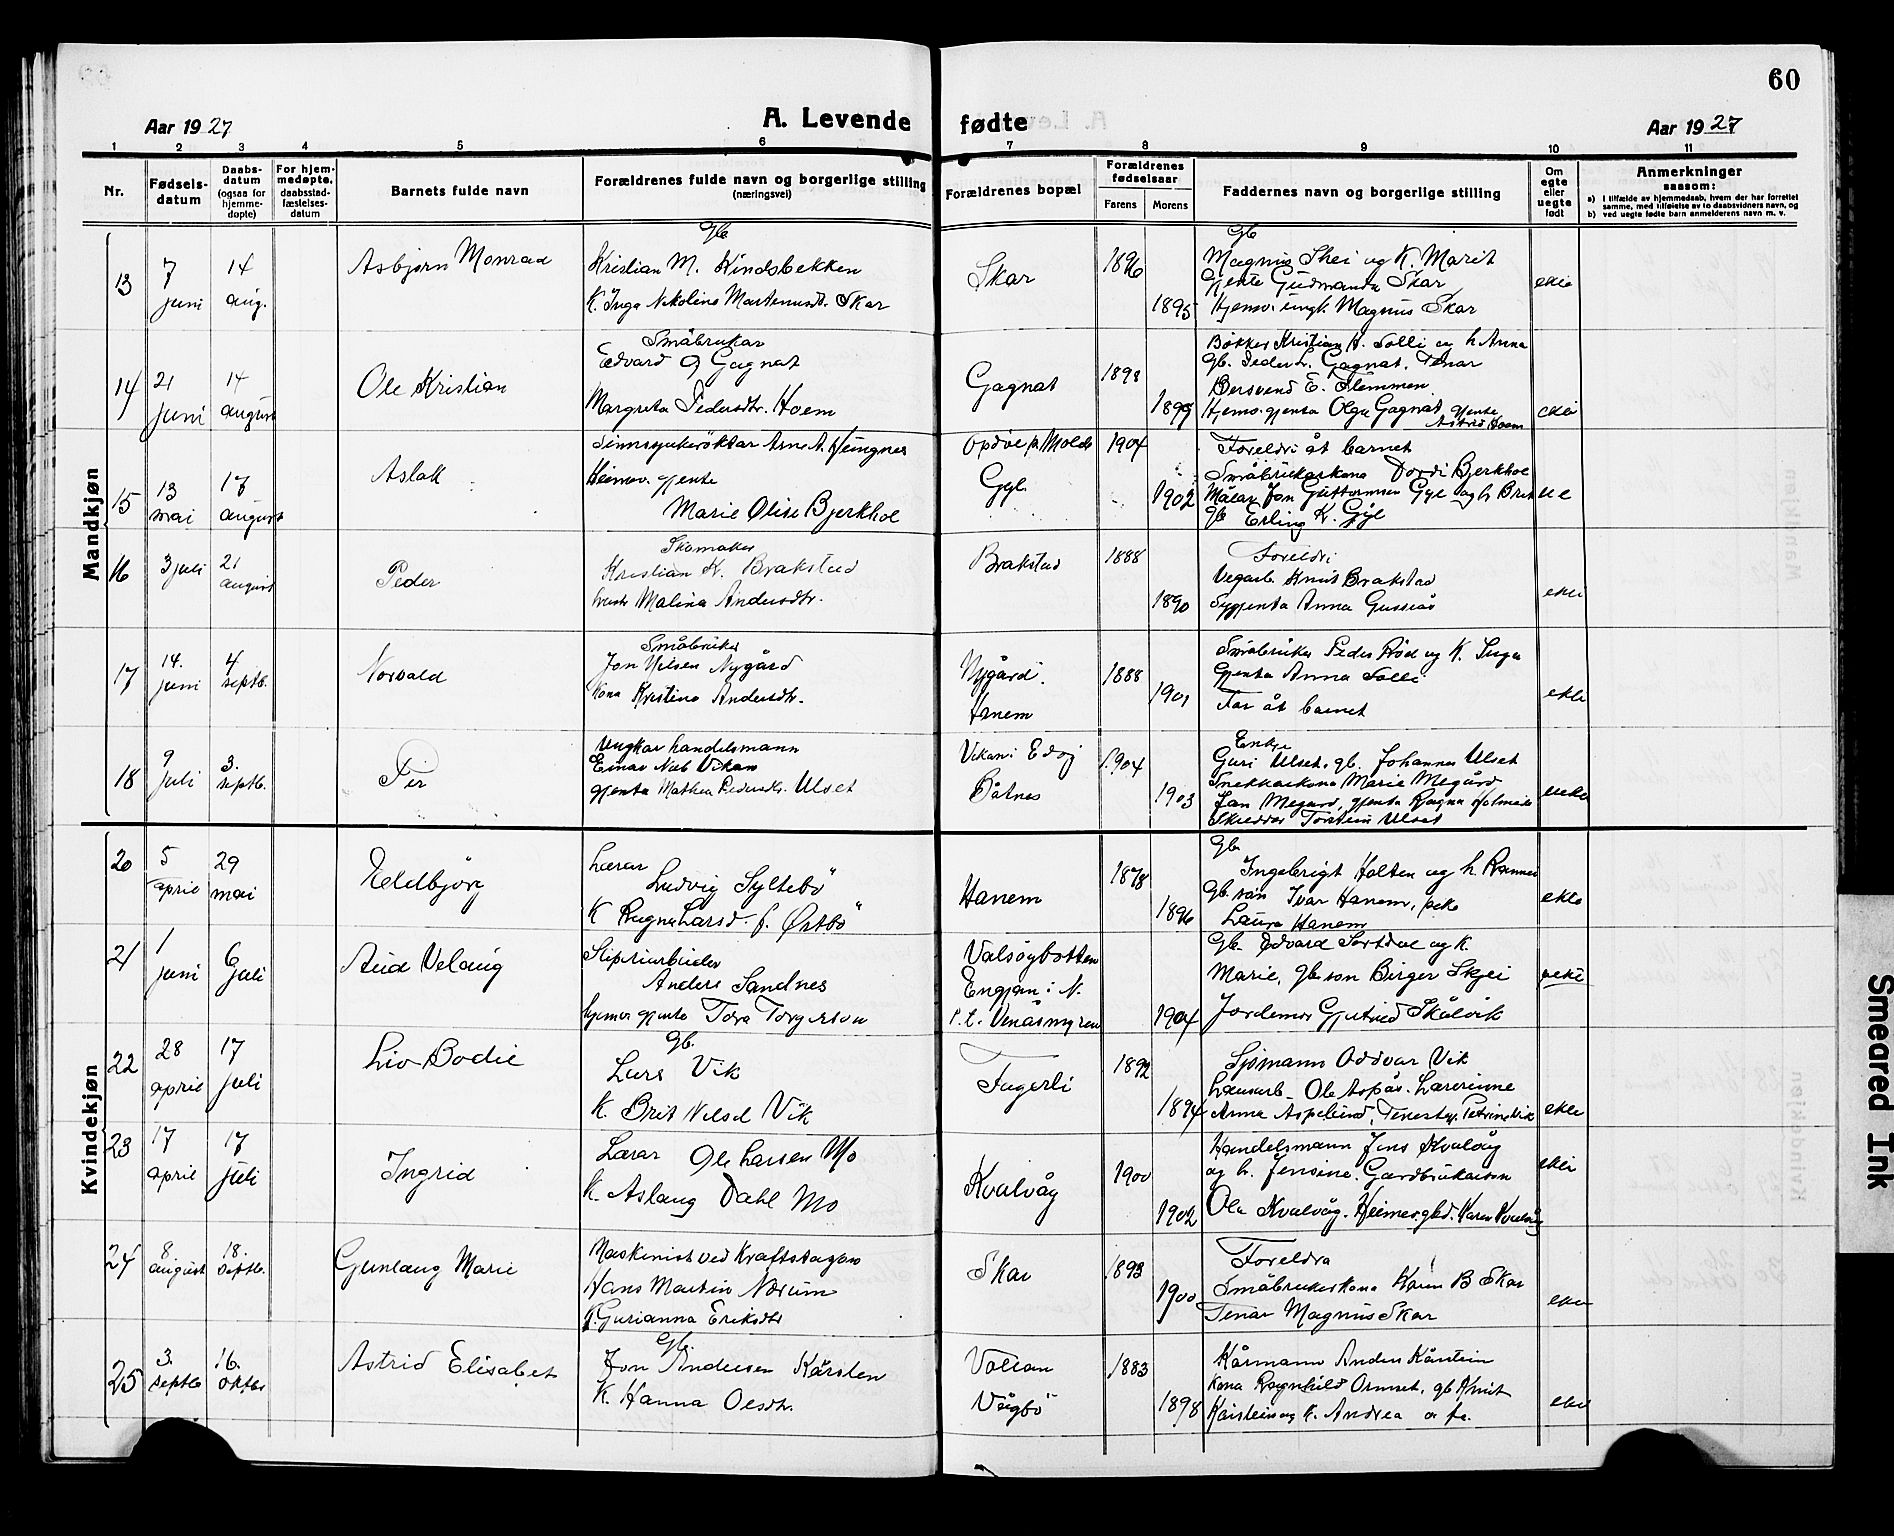 60
Aar 1927
A. Levende fødte
Aar 1927
1 2 3 4 5 6 7 8 9 10 11
Nr.
Fødsels-datum
Daabs-datum (ogsaa for hjemme-døpte)
For hjem-medøpte, daabsstad-fæstelses-datum
Barnets fulde navn
Forældrenes fulde navn og borgerlige stilling (næringsvei)
Forældrenes bopæl
Forældrenes fødselsaar
Farens Morens
Faddernes navn og borgerlige stilling
Om egte eller uegte født
Anmerkninger saasom:
a) I tilfælde av hjemmedaab, hvem der har forrettet samme, med tilføielse av to daabsvidners navn, og
b) ved uegte fødte barn anmelderens navn m. v.
Mandkjøn
13 7 juni 14 aug. Asbjørn Monrad
Gb.
Kristian M. Kindsbekken
K. Inga Nikoline Martenusdt. Skar
Skar 1896 1895
Gb.
Magnus Skei og K. Marit
Gjente Gudmunda Skar
Hjemv. ungk. Magnus Skar
ekte
14 21 juni 14 august Ole Kristian
Småbrukar
Edvard O Gagnat
Margreta Pedersdtr. Hoem
Gagnat 1898 1899
Bøkker Kristian A. Solli og h Anna
Gb. Peder L. Gagnat, Tenar
Bersvend E. Flemmen
Hjemv. gjenta Olga Gagnat gjente
Astrid Hoem
ekte
15 13 mai 17 august Aslak
Sinnssjukerøktar Arne A.
Heimev. gjente
Marie Olise Bjerkhoe
Opdøl p. Molde
Gyl 1904 1902
Foreldri åt barnet
Småbrukarkona Dordi Bjerkhoe
Målar Jon Guttormsen Gyl og h Brit
Gb Erling K. Gyl
ue
16 3 juli 21 august Peder
Skomaker
Kristian K. Brakstad
hustr Malina Andersdtr.
Brakstad 1888 1890
Foreldri
Vegarb. Knut Brakstad
Sygjenta Anna Gussiås
ekte
17 14. juni 4 septb. Norvald
Småbruker
Jon Nilsen Nygård
Kona Kristine Andersdtr.
Nygård i
Hanem
1888 1901
Småbruker Peder Hød og K. Inga
Gjenta Anna Solli
Far åt barnet
ekte
18 9 juli 3. septb. Per
Ungkar handelsmann
Einar Vikan
gjenta Mathea Pedersdtr. Ulset
Vikan i Edøy
Båtnes
1904 1903
Enkje
Guri Ulset, gb. Johannes Ulset
Snekkarkona Marie Megård
Jan Megård, gjenta Ragna Holmeide
Skreddar Torstein Ulset
uekte
Kvindekjøn
20 5 april 29 mai Eldbjørg
Lærar
Ludvig Syltebø
K Ragna Larsd. f. Østbø
Hanem 1878 1896
Gb.
Ingebrigt Holten og h Rannei
Gb. søn Ivar Hanem, pike
Laura Hanem
ekte
21 1 juni 6 juli Aud Velaug
Sliperiarbeider
Anders Sandnes
hjemv gjente Tora Torgerson
Valsøybotten
Engjan i N.
p.t. Venåsmyren
1904
Gb. Edvard Sortdal og K.
Marie, gb.søn Birger Skjei
Jordemor Gjertrud Skålvik
uekte
22 28 april 17 juli Liv Bodil
Gb.
Lars Vik
K. Brit Nilsd Vik
Fugerli 1892 1894
Sjømann Oddvar Vik
Lausarb. Ole Aspås. Lærerinne
Anna Aspelund, Tenestej. Petrine Vik
ekte
23 17 april 17 juli Ingrid
Lærar Ole Larsen Mo
K. Aslaug Dahl Mo
Kvalvåg 1900 1902
Handelsmann Jens Kvalvåg
og h. Jensine. Gardbrukarson
Ola Kvalvåg. Heimev. gbd. Karen Kvalvåg
ekte
24 8 august 18. septb. Gunlaug Marie
Maskinist ved Kraftstasjon
Hans Martin Norum
K. Gurianna Eriksdtr
Skar 1893 1900
Foreldra
Småbrukerkona Karen B Skar
Tenar Magnus Skar
ekte
25 3. septb 16. oktbr Astrid Elisabet
Gb.
Jon Andersen Kårsten
K. Hanna Olsdtr.
Vollan
Vågbø
1883 1898
Kårmann Anders Kårstein
Kona Ragnhild Ormset, gb Knut
Kårstein og K. Andrea a fr.
ekte
Smeared Ink